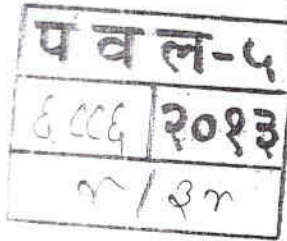 प व ल-५
६८८६ २०१३
४/३४